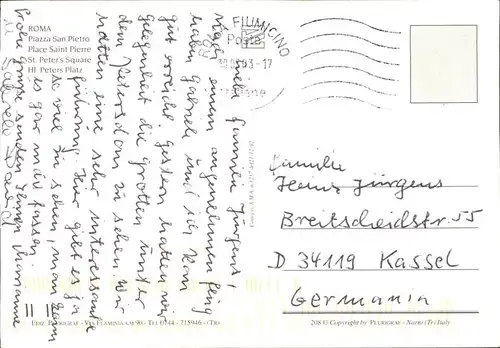 ROMA
Piazza San Pietro
Place Saint Pierre
St. Peter's Square
Hl. Peters Platz
FIUMICINO
Poste
03-17
Familie Jürgens!
Nach einem angenehmen Flug
haben Gabriele und ich Rom
gut erreicht. Gestern hatten wir
Gelegenheit die Grotten unter
dem Petersdom zu sehen. Wir
hatten eine sehr interessante
Führung. Hier gibt es ja
so viel zu sehen, man kann
es gar nicht fassen.
Frohe Grüße senden Ihnen Marianne
Familie
Heinz Jürgens
Breitscheidstr. 55
D 34119 Kassel
Germania
EDIZ. PLURIGRAF - VIA FLAMINIA KM 90 - TEL 0744 - 715946 - (TR)
208 © Copyright by PLURIGRAF - Narni (Tr) Italy